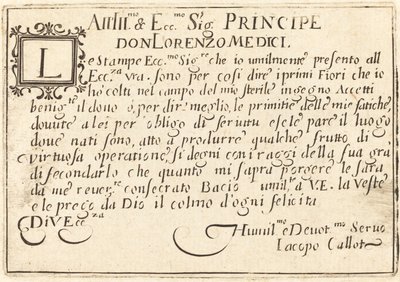 All Ill.mo & Ecc.mo Sig. PRINCIPE
DON LORENZO MEDICI.
Le Stampe Ecc.mo Sig.re che io umilmente presento all
Ecc.za vra. sono per cosi dire i primi Fiori che io
hò colti nel campo del mio sterile ingegno Accetti
benig.te il dono ò, per dir meglio, le primitie delle mie fatiche,
douute a lei per obligo di seruitu e se le pare il luogo
doue nati sono, atto a produrre qualche frutto di
virtuosa operatione, si degni con i raggi della sua gra.
di fecondarlo che quanto mi saprà porgere le sarà
da me reuer.te consecrato Bacio umil.te a V.E. la Veste
e le prego da Dio il colmo d'ogni felicita
Di V Ecc.za
Humil.mo e Deuot.mo Seruo
Iacopo Callot